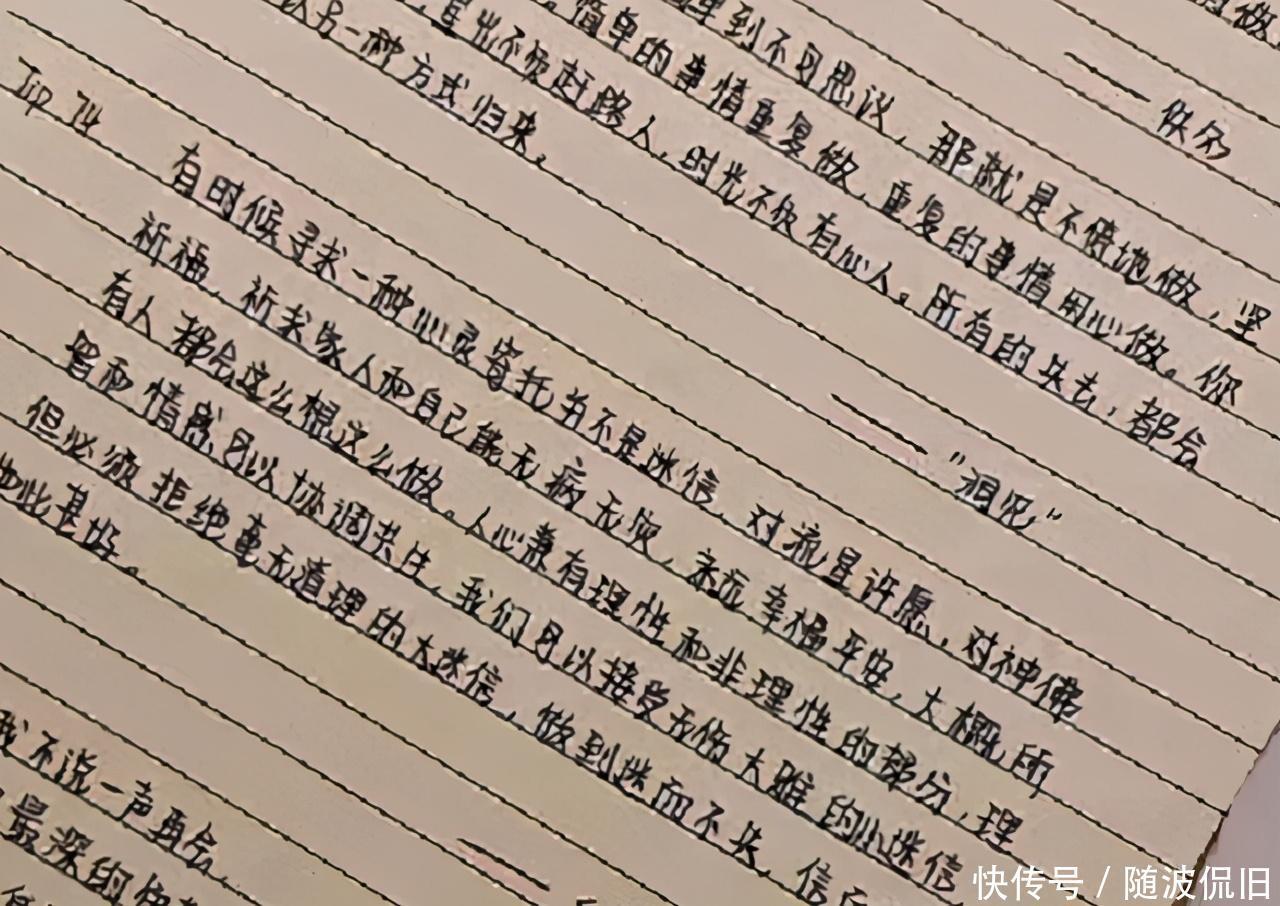 做
—— 佚名
理到不可思议，那就是不停地做，坚
简单的事情重复做，重复的事情用心做。你
星出不负赶路人，时光不负有心人。所有的失去，都会
以另一种方式归来。
—— “洞见”
有时候寻求一种心灵寄托并不是迷信，对流星许愿，对神佛
祈福，祈求家人和自己能无病无灾，永远幸福平安，大概所
有人都会这么想这么做。人心兼有理性和非理性的部分，理
智和情感可以协调共生，我们可以接受无伤大雅的小迷信
但必须拒绝毫无道理的大迷信，做到迷而不失，信
此甚好。
我不说一声再会，
最深的
快传号 / 随波侃旧